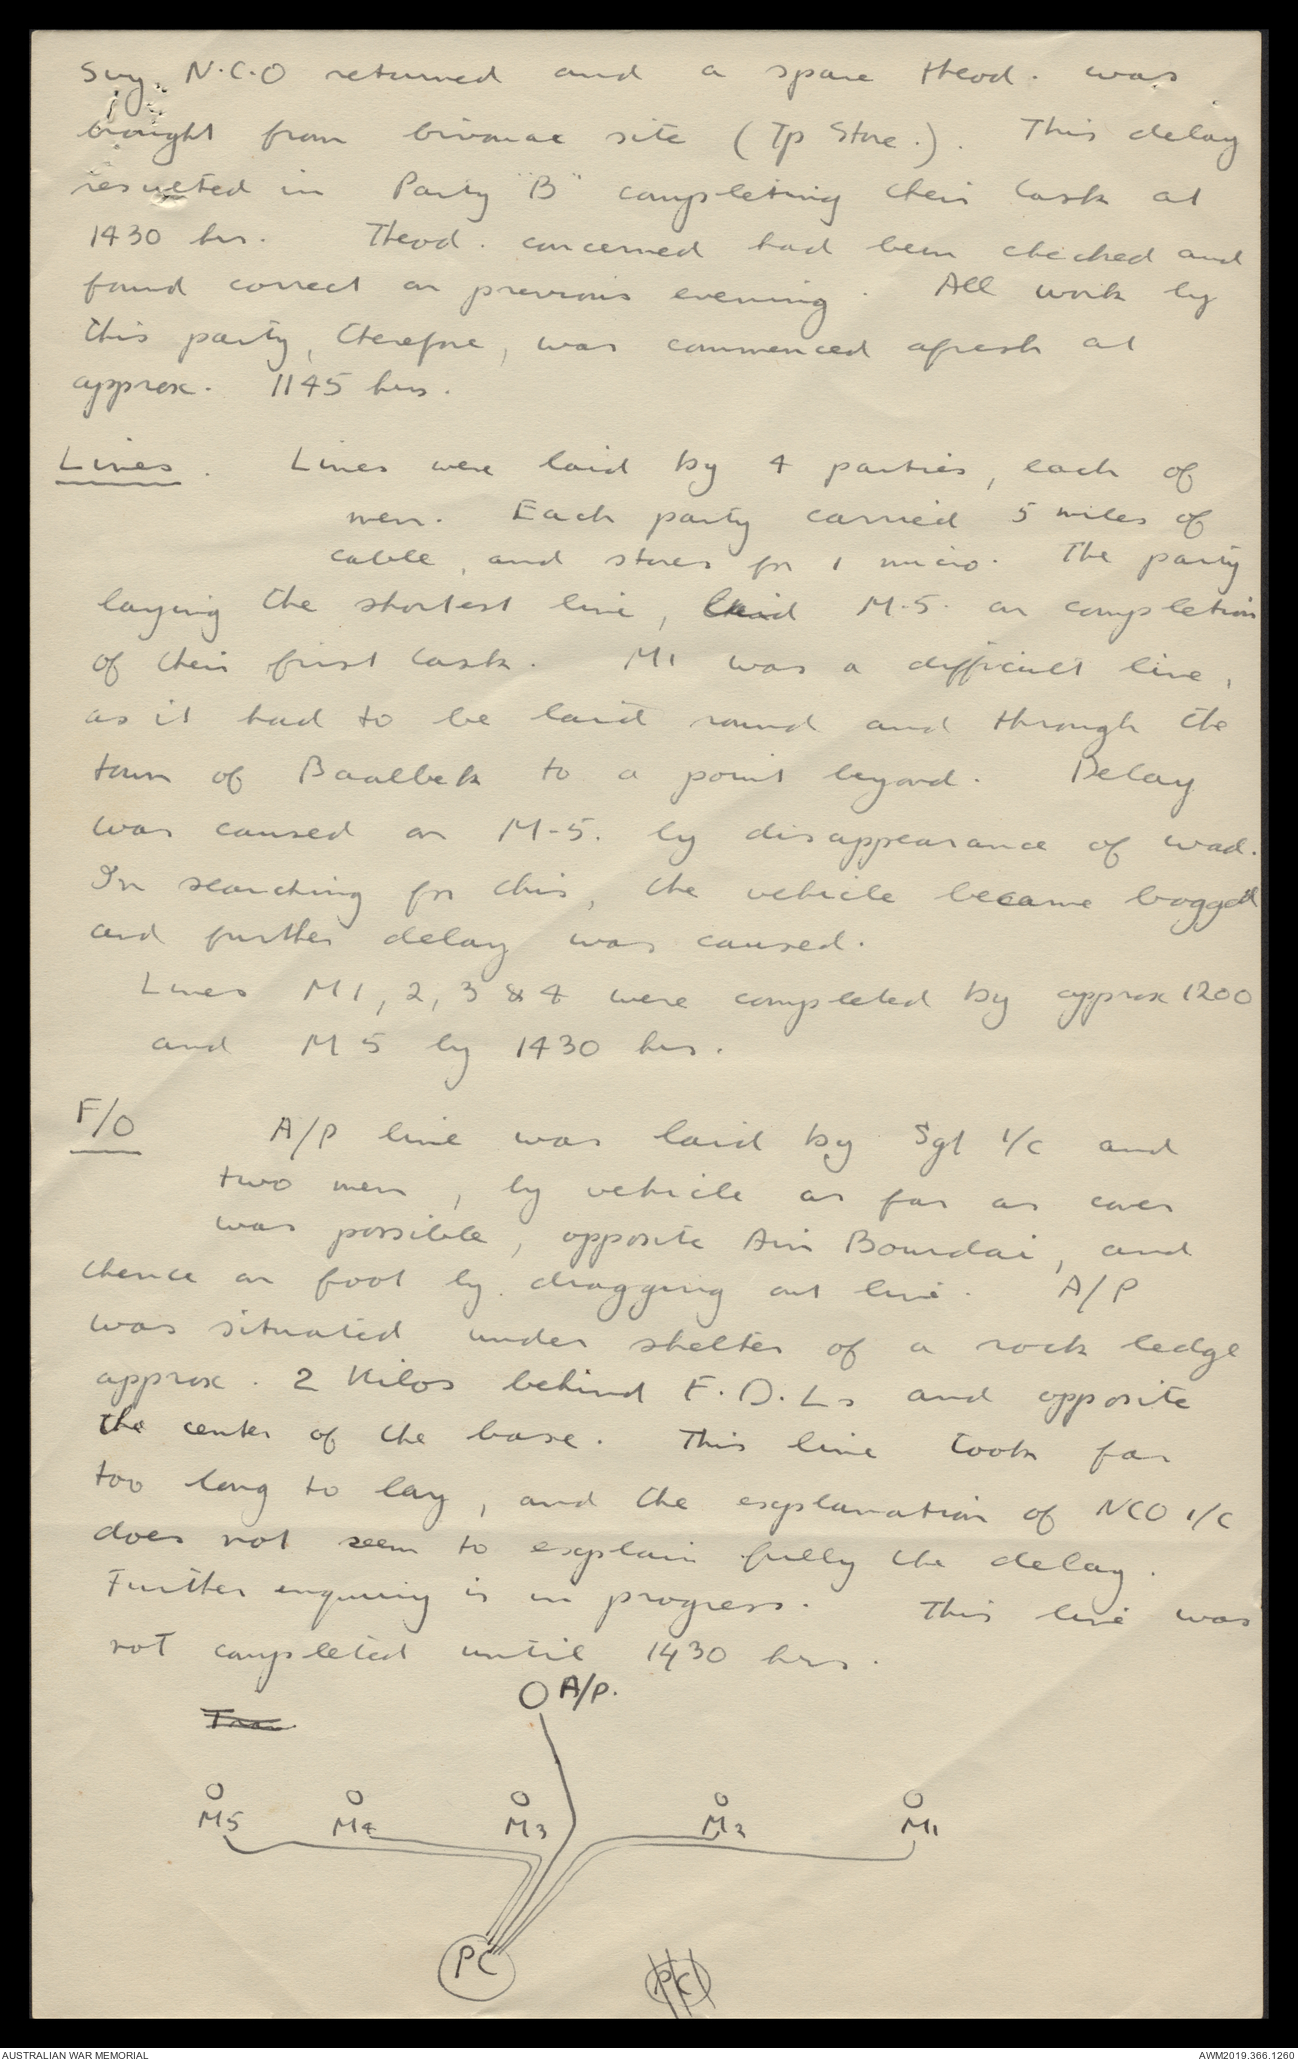 Svy. N.C.O returned and a spare theod. was
brought from bivouac site (Tp Store.). This delay
resulted in Party "B" completing their task at
1430 hrs. Theod. concerned had been checked and
found correct on previous evening. All work by
this party, therefore, was commenced afresh at
approx. 1145 hrs.
Lines. Lines were laid by 4 parties, each of
men. Each party carried 5 miles of
cable, and stores for 1 micro. The party
laying the shortest line, laid M.5. on completion
of their first task. M1 was a difficult line,
as it had to be laid round and through the
town of Baalbek to a point beyond. Delay
was caused on M-5. by disappearance of wad.
In searching for this, the vehicle became bogged
and further delay was caused.
Lines M1, 2, 3 & 4 were completed by approx 1200
and M5 by 1430 hrs.
F/O A/P line was laid by Sgt i/c and
two men, by vehicle as far as cover
was possible, opposite Ain Bourdai, and
thence on foot by dragging out line. A/P
was situated under shelter of a rock ledge
approx. 2 Kilos behind F.D.Ls and opposite
the center of the base. This line took far
too long to lay, and the explanation of NCO i/c
does not seem to explain fully the delay.
Further enquiry is in progress. This line was
not completed until 1430 hrs.
A/P.
M5 M4 M3 M2 M1
PC
PC
AUSTRALIAN WAR MEMORIAL AWM2019.366.1260